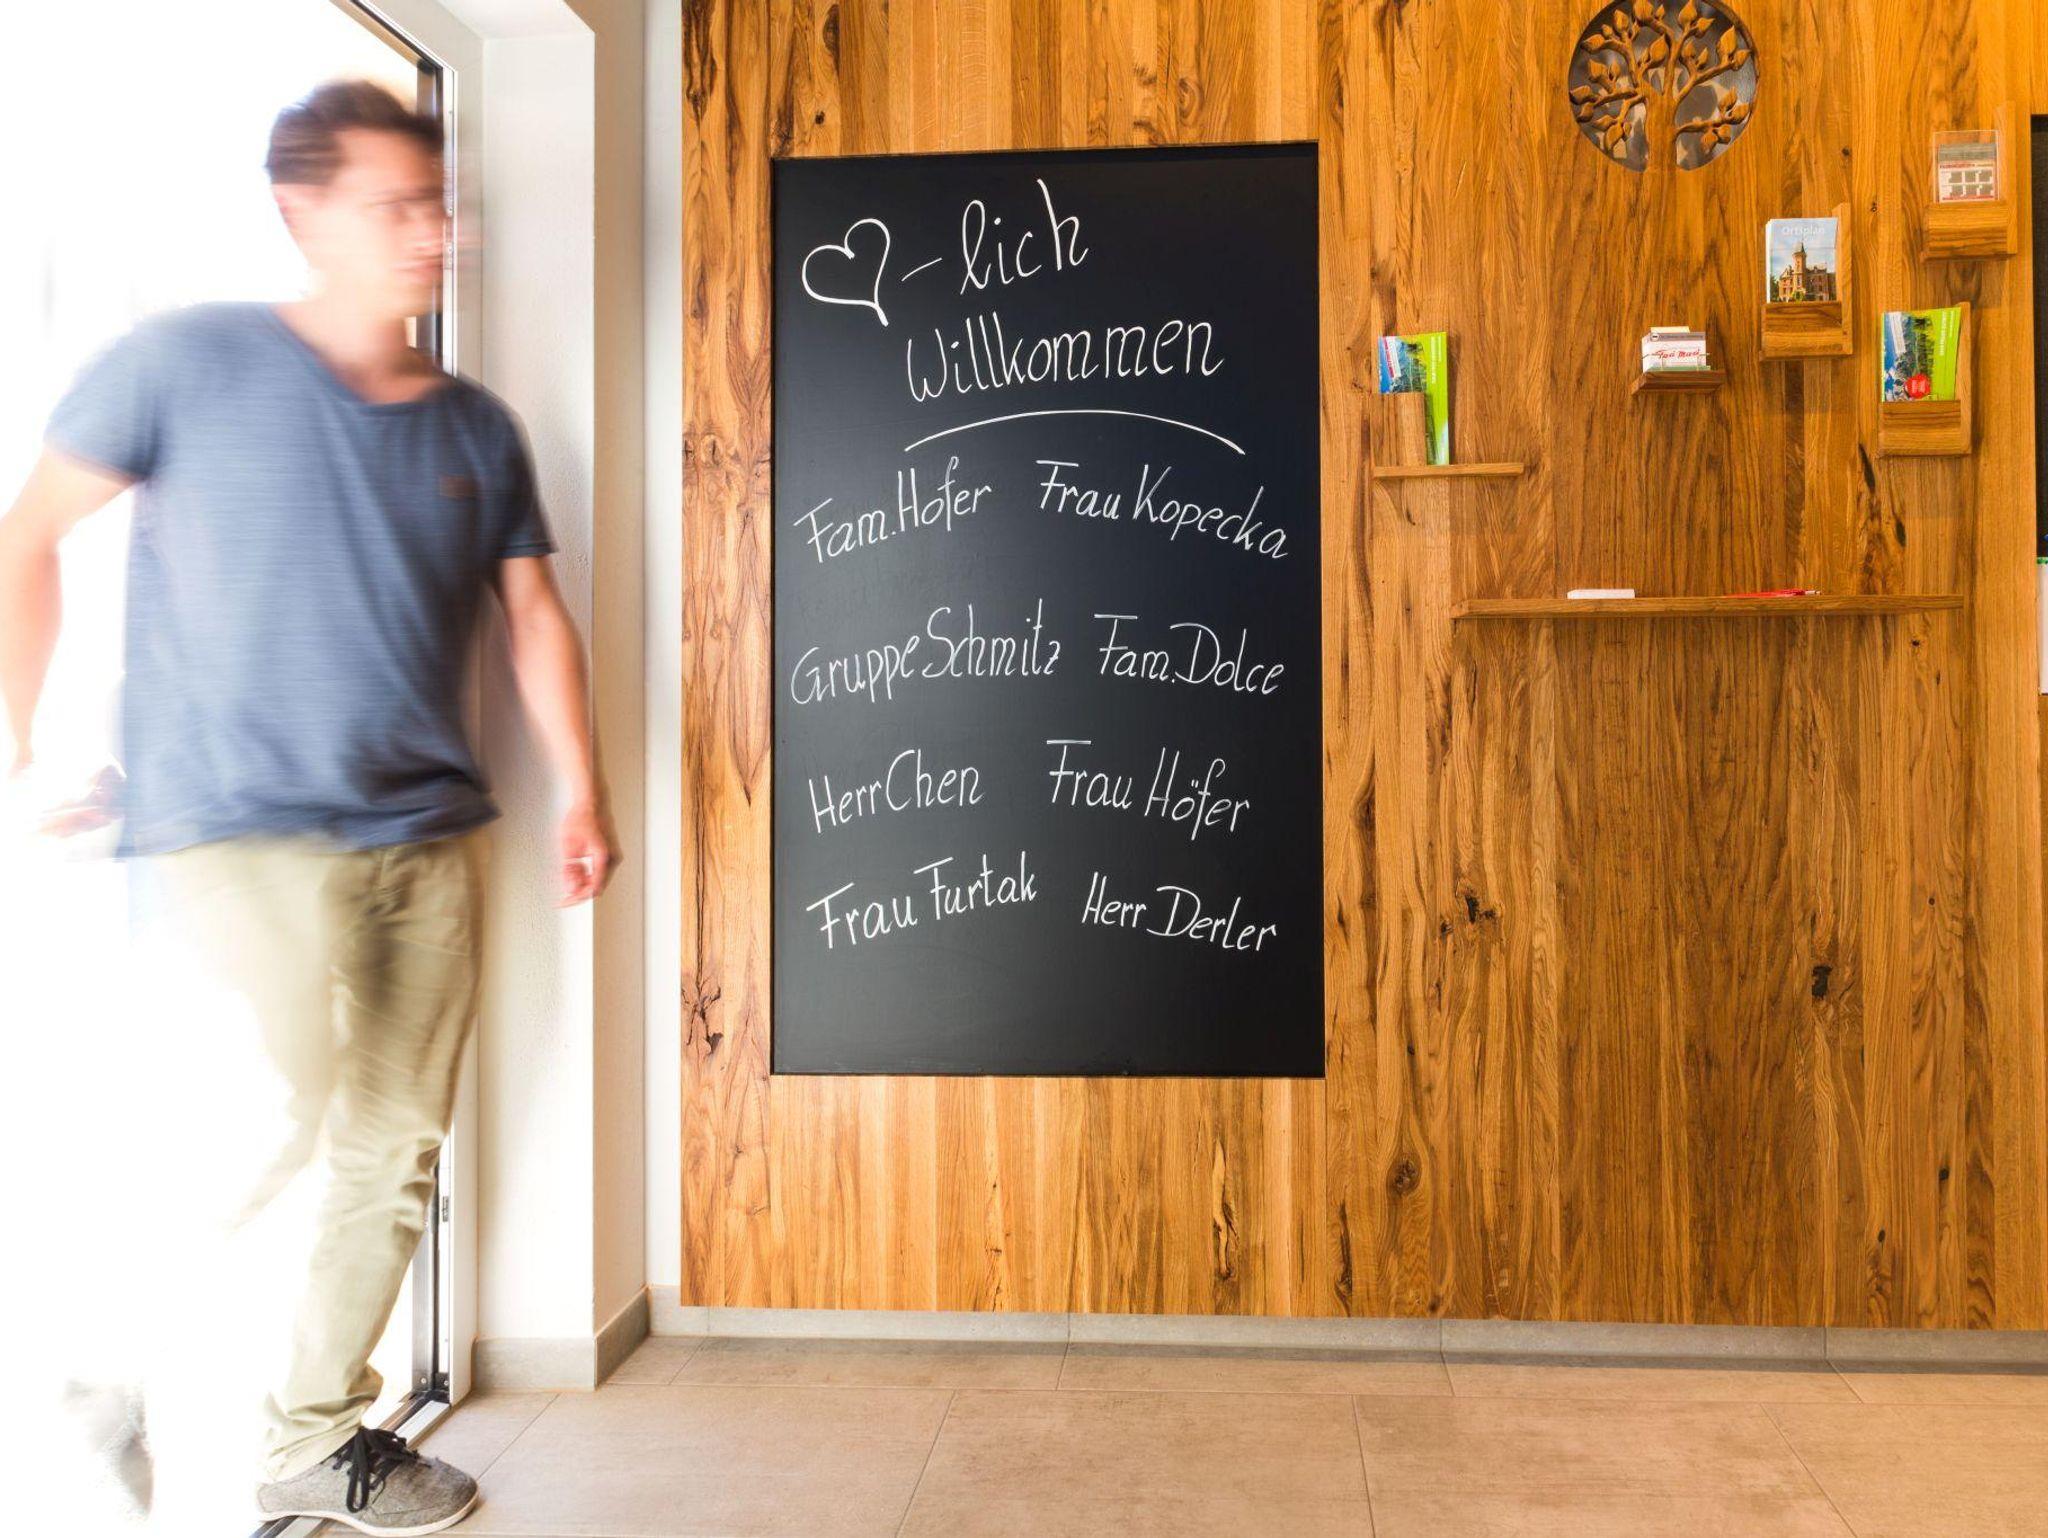 -lich
Willkommen
Fam. Hofer Frau Kopecka
Gruppe Schmitz Fam. Dolce
Herr Chen Frau Höfer
Frau Furtak Herr Derler
Ortsplan